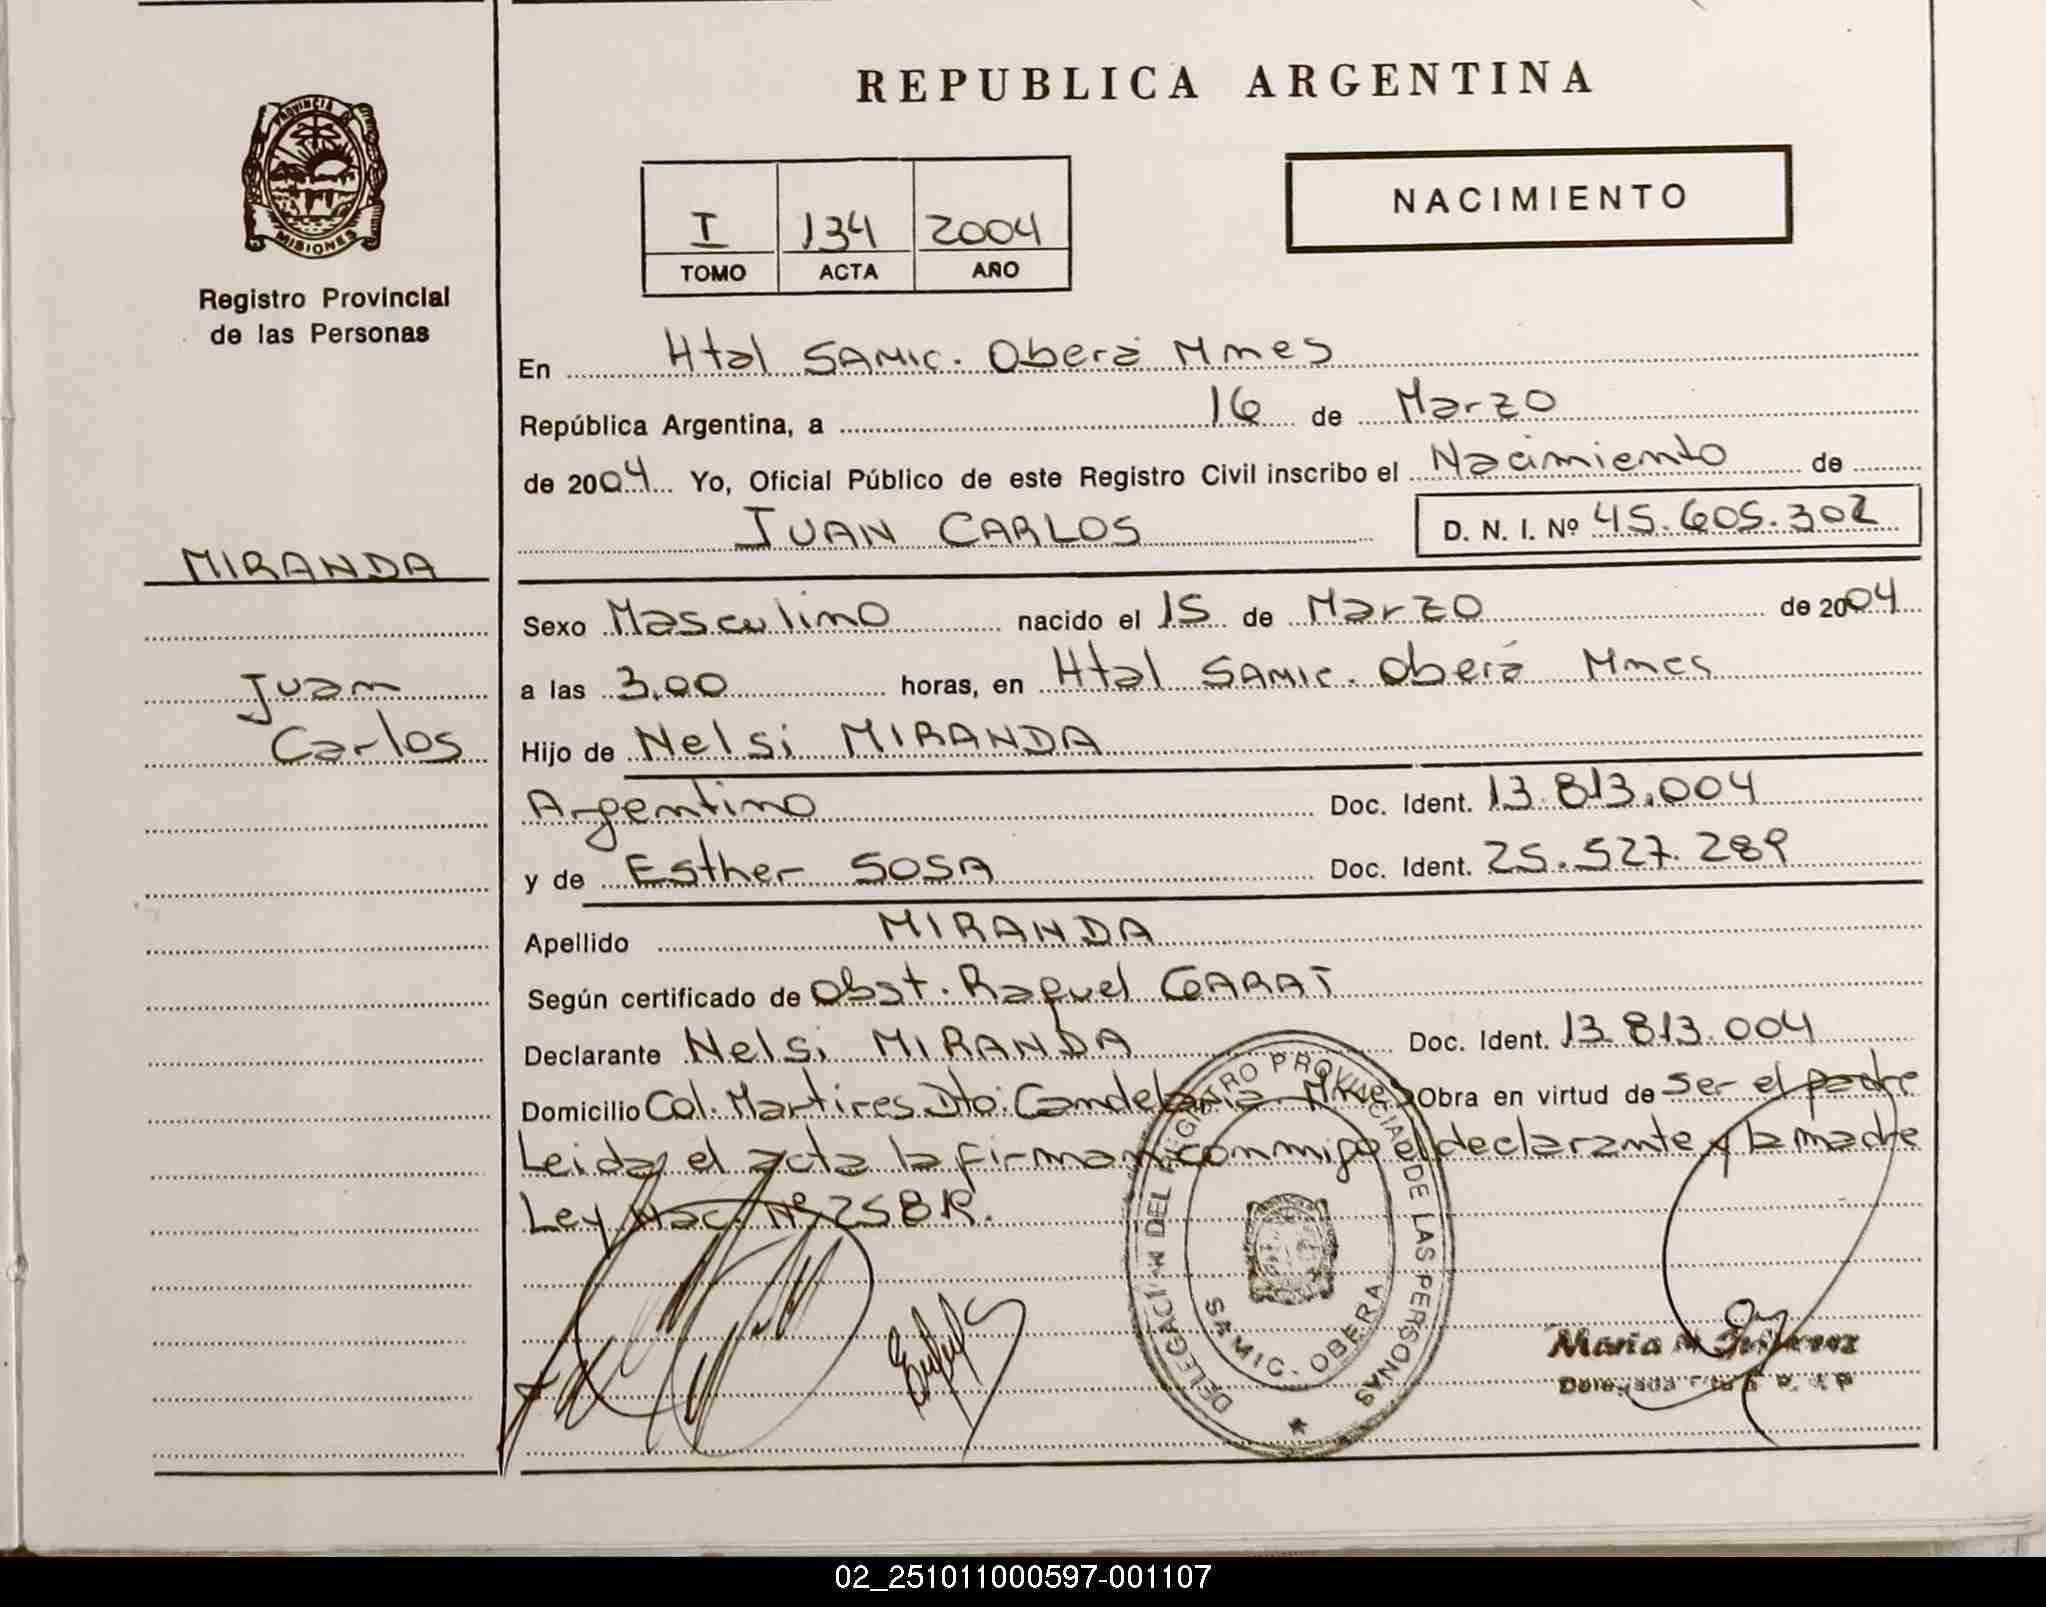 REPUBLICA ARGENTINA
PROVINCIA DE
MISIONES
Registro Provincial
de las Personas
NACIMIENTO
I 134 2004
TOMO ACTA AÑO
En Htal SAMIC. Oberá Mnes
República Argentina, a 16 de Marzo
de 2004 Yo, Oficial Público de este Registro Civil inscribo el Nacimiento de
JUAN CARLOS D. N. I. Nº 45.605.302
MIRANDA
Juan
Carlos
Sexo Masculino nacido el 15 de Marzo de 2004
a las 3,00 horas, en Htal SAMIC. Oberá Mnes
Hijo de Nelsi MIRANDA
Argentino Doc. Ident. 13.813.004
y de Esther SOSA Doc. Ident. 25.527.289
Apellido MIRANDA
Según certificado de Obst. Raquel GARAT
Declarante Nelsi MIRANDA Doc. Ident. 13.813.004
Domicilio Col. Martires Dto: Candelaria Mnes Obra en virtud de ser el padre
Leida el acta la firman conmigo el declarante y la madre
Ley Nac. Nº
DEL REGISTRO PROVINCIAL DE LAS PERSONAS
SAMIC. OBERA
Maria
02_251011000597-001107